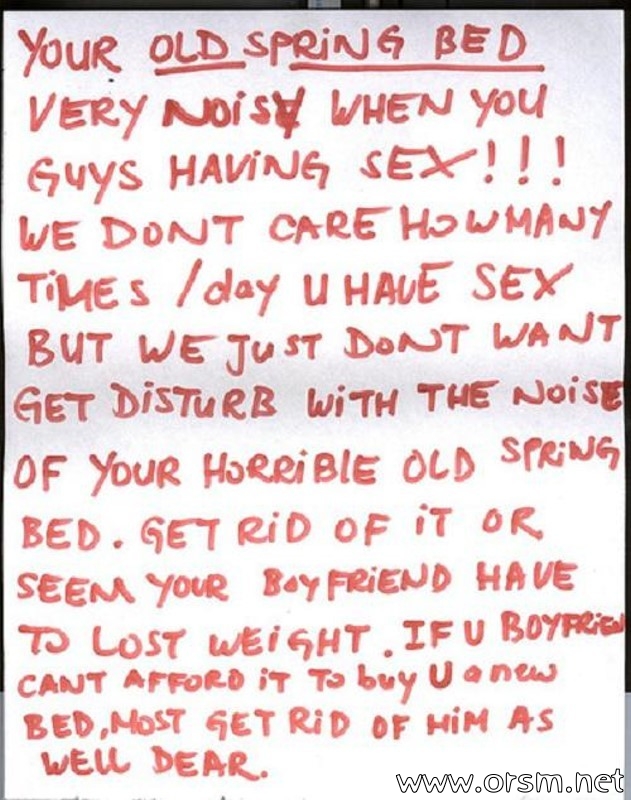 YOUR OLD SPRING BED
VERY NOISY WHEN YOU
GUYS HAVING SEX!!!
WE DONT CARE HOWMANY
TIMES /day U HAVE SEX
BUT WE JUST DONT WANT
GET DISTURB WITH THE NOISE
OF YOUR HORRIBLE OLD SPRING
BED. GET RID OF IT OR
SEEM YOUR BOYFRIEND HAVE
TO LOST WEIGHT. IF U BOYFRIEN
CANT AFFORD IT TO buy U a new
BED, MOST GET RID OF HIM AS
WELL DEAR.
www.orsm.net